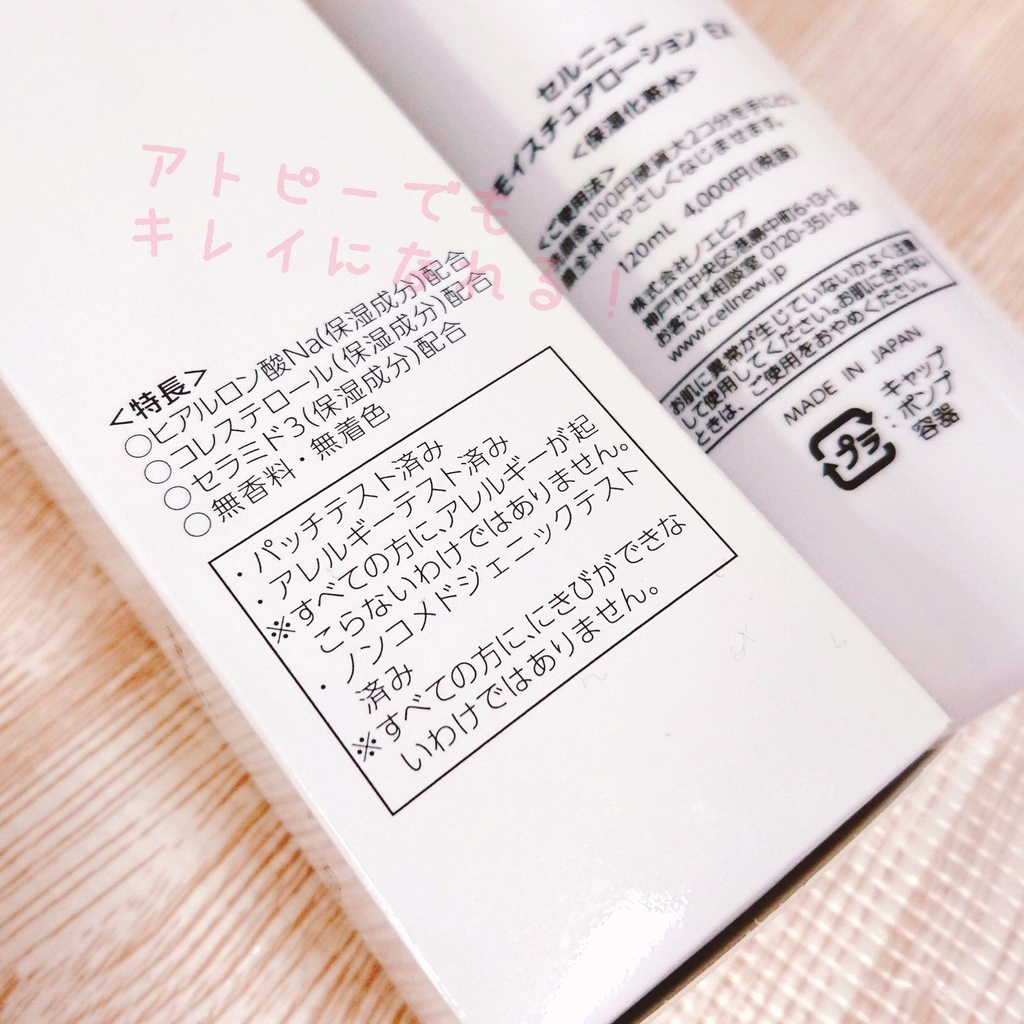 アトピーでも
キレイになれる！
<特長>
○ヒアルロン酸Na(保湿成分)配合
○コレステロール(保湿成分)配合
○セラミド3(保湿成分)配合
○無香料・無着色
・パッチテスト済み
・アレルギーテスト済み
※すべての方に、アレルギーが起
こらないわけではありません。
・ノンコメドジェニックテスト
済み
※すべての方に、にきびができな
いわけではありません。
セルニュー
モイスチュアローション EX
<保湿化粧水>
<ご使用法>
洗顔後、100円硬貨大2コ分を手にとり
顔全体にやさしくなじませます。
120mL 4,000円(税抜)
株式会社ノエビア
神戸市中央区港島中町6-13-1
お客さま相談室 0120-351-134
www.cellnew.jp
お肌に異常が生じていないかよく注意
して使用してください。お肌に合わない
ときは、ご使用をおやめください。
MADE IN JAPAN
プラ
:キャップ
:ポンプ
容器